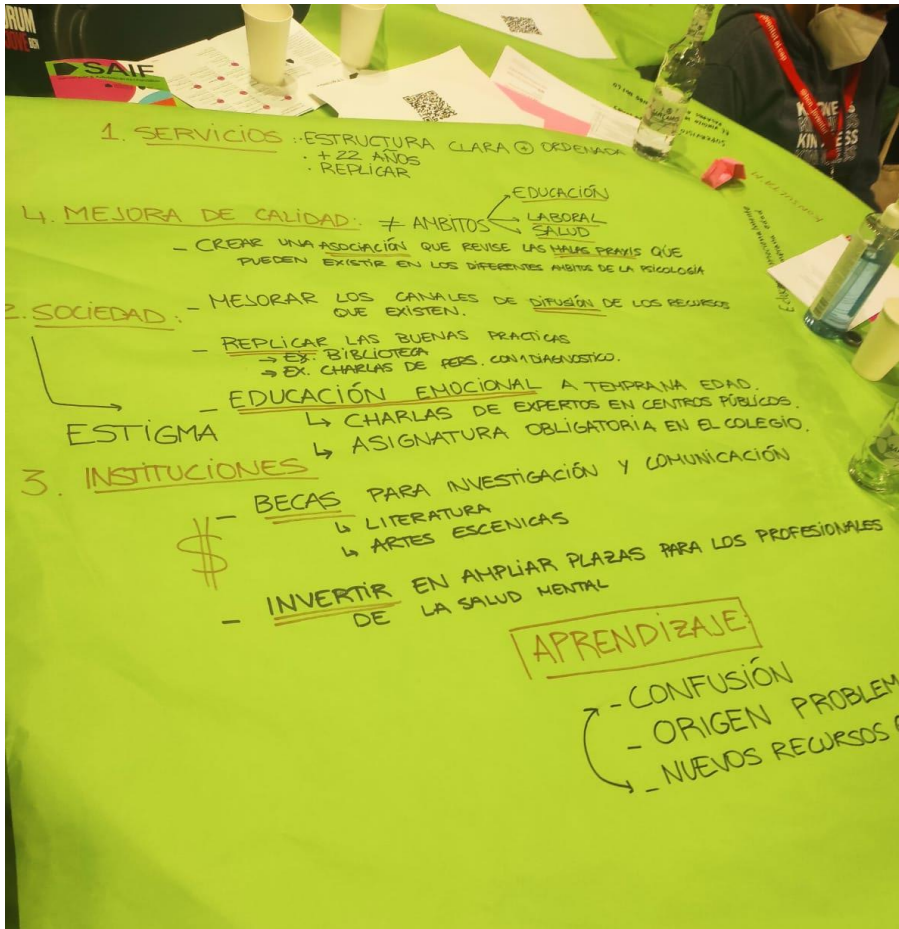 FORUM
JOVE BCN
SAIF
KINDNESS
KINDNESS
1. SERVICIOS :· ESTRUCTURA CLARA + ORDENADA
· + 22 AÑOS
· REPLICAR
4. MEJORA DE CALIDAD: ≠ AMBITOS
EDUCACIÓN
LABORAL
SALUD
- CREAR UNA ASOCIACIÓN QUE REVISE LAS MALAS PRAXIS QUE
PUEDEN EXISTIR EN LOS DIFERENTES AMBITOS DE LA PSICOLOGÍA
2. SOCIEDAD: - MEJORAR LOS CANALES DE DIFUSIÓN DE LOS RECURSOS
QUE EXISTEN.
- REPLICAR LAS BUENAS PRACTICAS
→ EX. BIBLIOTECA
→ EX. CHARLAS DE PERS. CON 1 DIAGNOSTICO.
- EDUCACIÓN EMOCIONAL A TEMPRANA EDAD.
ESTIGMA
↳ CHARLAS DE EXPERTOS EN CENTROS PÚBLICOS.
↳ ASIGNATURA OBLIGATORIA EN EL COLEGIO.
3. INSTITUCIONES
$
- BECAS PARA INVESTIGACIÓN Y COMUNICACIÓN
↳ LITERATURA
↳ ARTES ESCENICAS
- INVERTIR EN AMPLIAR PLAZAS PARA LOS PROFESIONALES
DE LA SALUD MENTAL
APRENDIZAJE:
- CONFUSIÓN
- ORIGEN PROBLEM
- NUEVOS RECURSOS